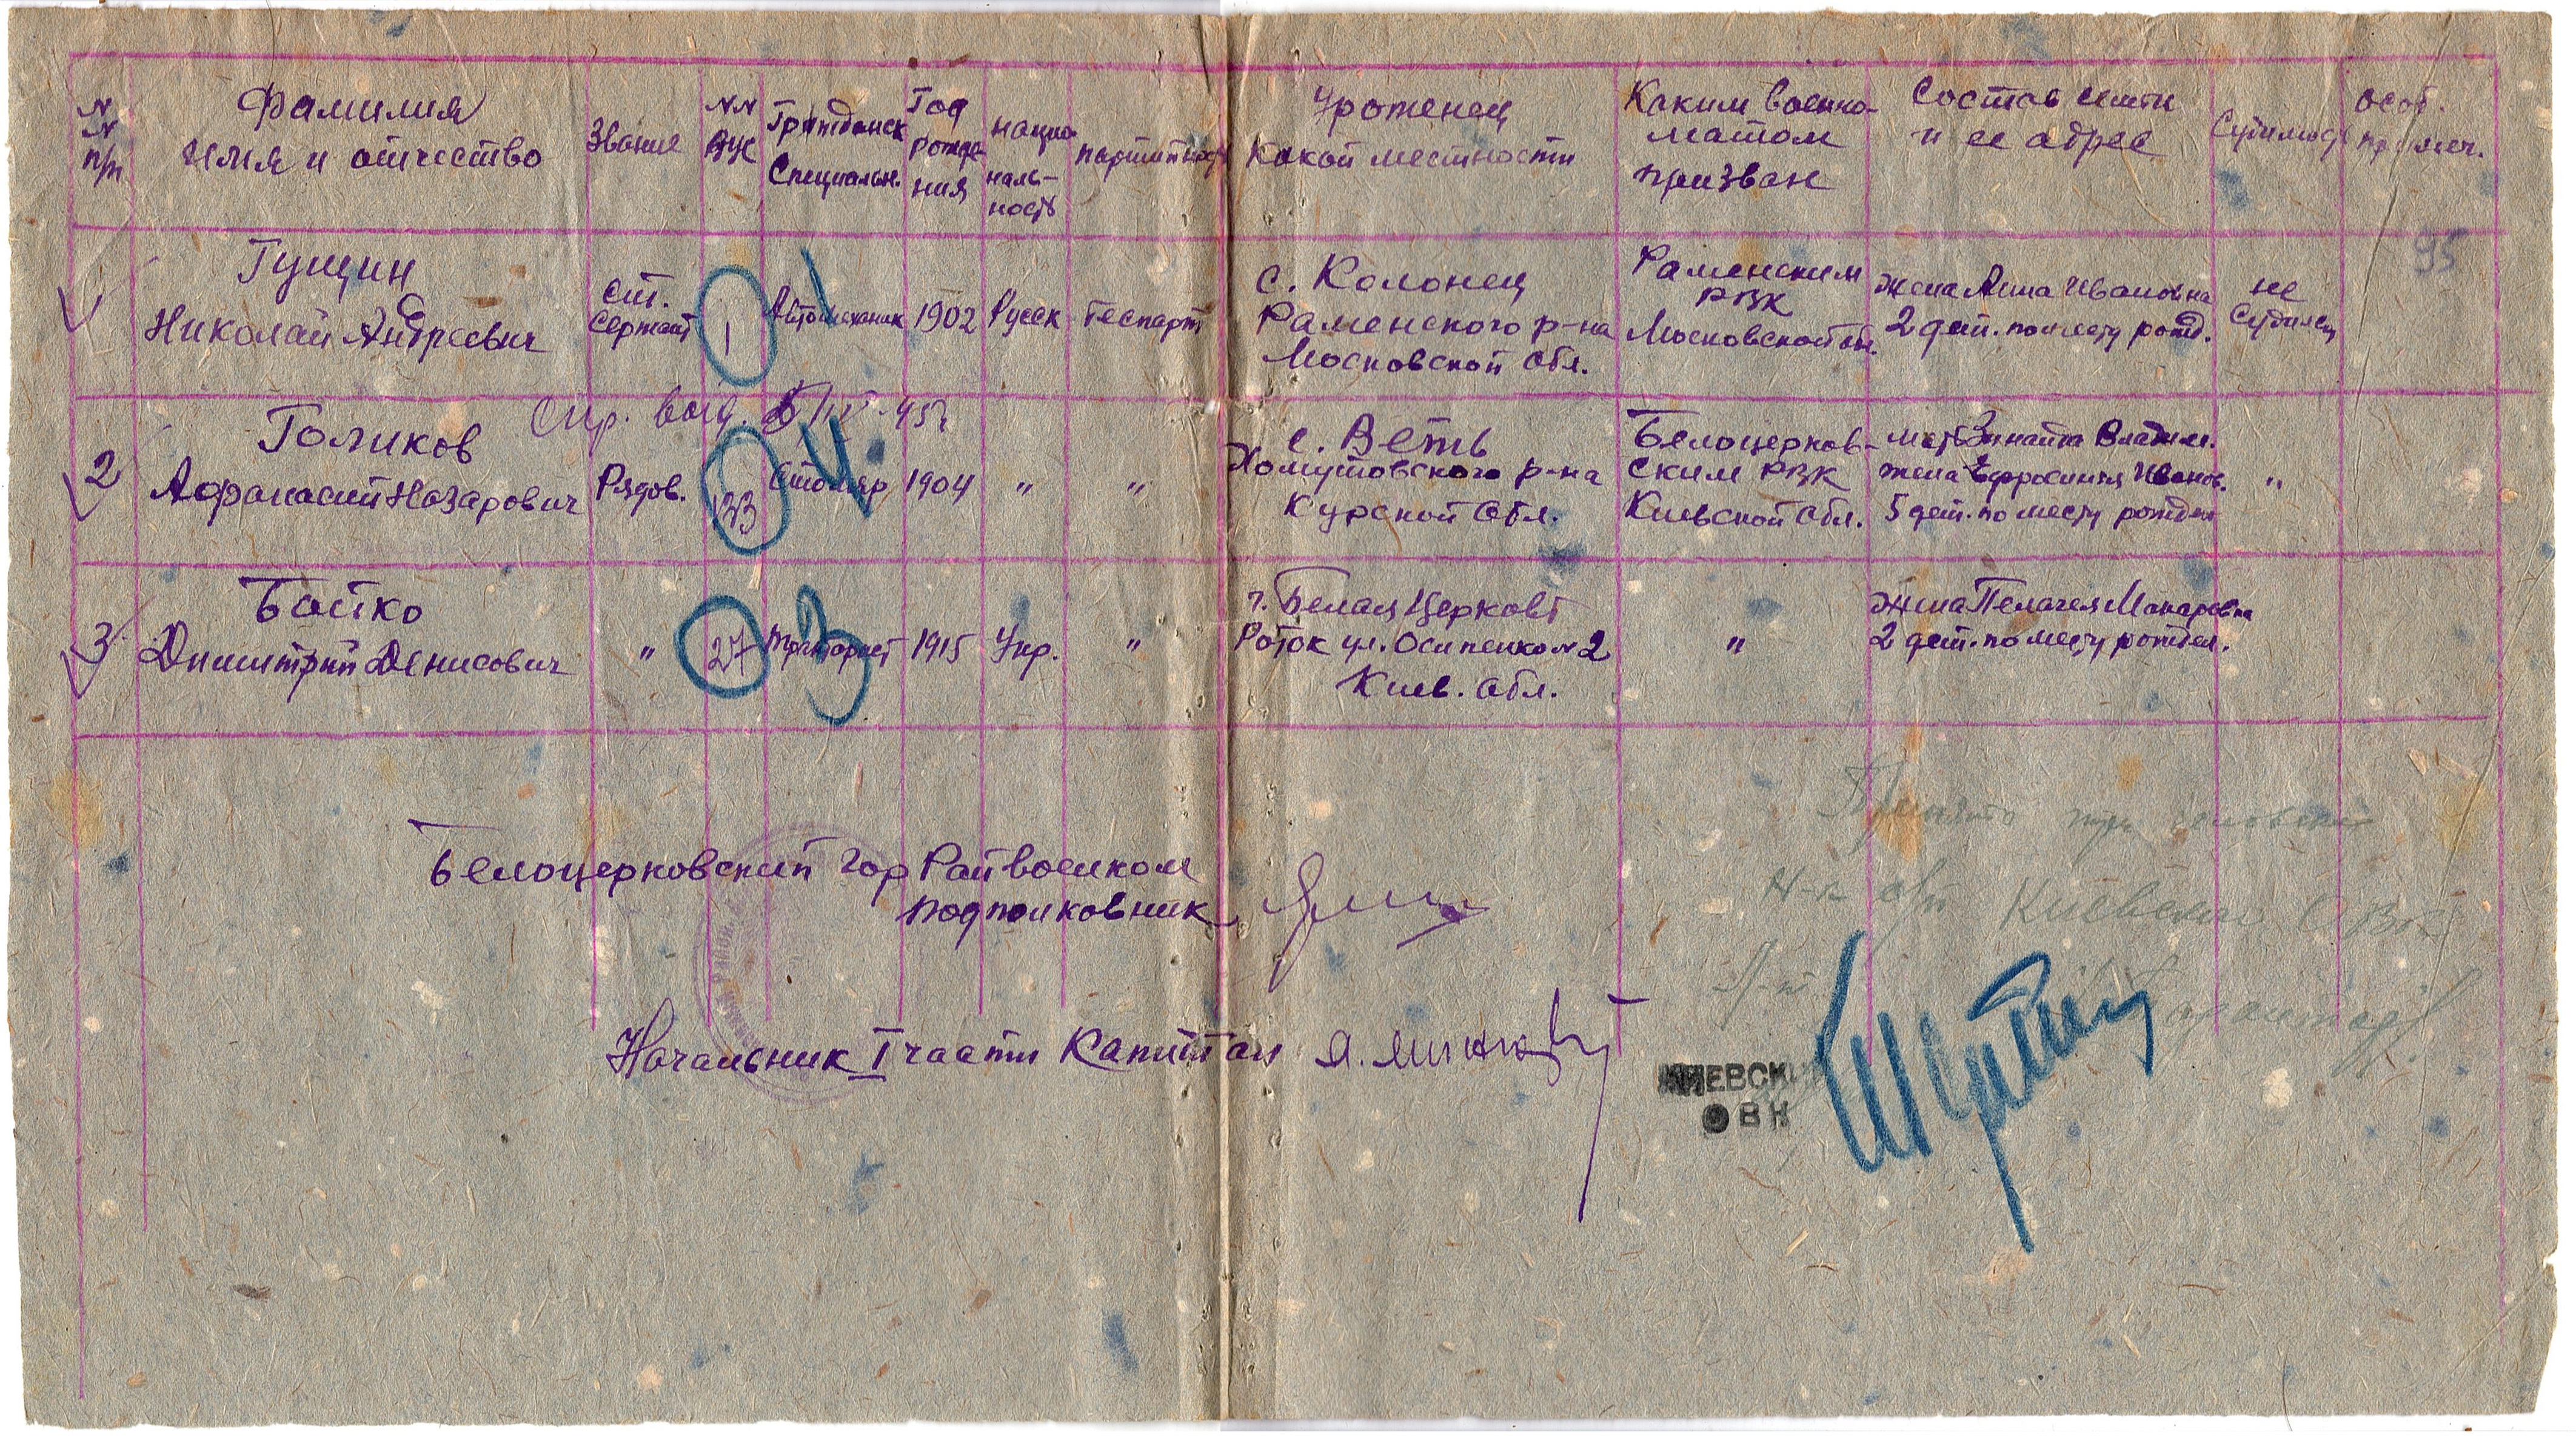 N N п/п
Фамилия
имя и отчество
Звание
NN ВУС
Гражданск
Специальн.
Год
рожде
ния
нацио
наль-
ность
партийность
Уроженец
какой местности
Каким военко-
матом
призван
Состав семьи
и ее адрес
Судимость
особ.
примеч.
95
Гущин
Николай Андреевич
Ст.
Сержант
1
Автомеханик
1
1902
Русск
Беспарт
с. Колонец
Раменского р-на
Московской обл.
Раменским
РВК
Московской обл.
жена Анна Ивановна
2 дет. по месту рожд.
не
судился
Спр. выд.
2
Голиков
Афанасий Назарович
Рядов.
133
Столяр
4
1904
"
"
с. Веть
Хомутовского р-на
Курской обл.
Белоцерков-
ским РВК
Киевской обл.
мать Зинаида Владим.
жена Ефросиния Иванов.
5 дет. по месту рожден
"
3
Бойко
Димитрий Денисович
"
27
тракторист
3
1915
Укр.
"
г. Белая Церковь
Роток ул. Осипенко N 2
Киев. обл.
"
Жена Пелагея Макаровна
2 дет. по месту рожден.
Белоцерковский Гор Райвоенком
подполковник
Начальник I части Капитан
Принято три человека
Киевского ОВК
КИЕВСКИ
ОВК